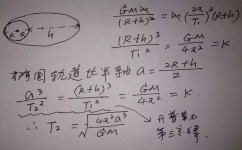 R R
h
GMm/(R+h)² = m(2π/T₁)²(R+h)
(R+h)³/T₁² = GM/4π² = K.
椭圆轨道半长轴 a = 2R+h/2
a³/T₂² = (R+h)³/T₁² = GM/4π² = K.
∴ T₂ = √4π²a³/GM
开普勒
第三定律.